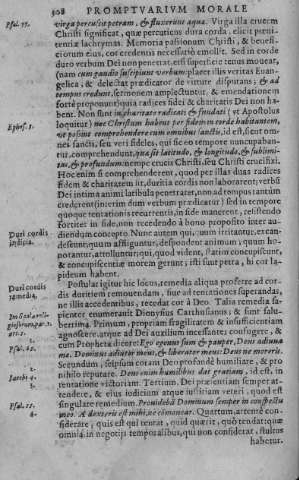 508 PROMPTVARIVM MORALE
Psal. 77. virga percussit petram, & fluxerunt aquæ. Virga illa crucem
Christi significat, quæ percutiens dura corda, elicit pœni-
tentiæ lachrymas. Memoria passionum Christi, & benefi-
ciorum eius, cor credentis necessariò emollit. Sed in corde
duro verbum Dei non penetrat, esto superficiem moueat,
(nam cum gaudio suscipiunt verbum) placet illis veritas Euan-
gelica, & delectat prædicator de virtute disputans; & ad
tempus credunt, sermonem amplectuntur, & emendationem
fortè proponunt: quia radices fidei & charitatis Dei non ha-
bent. Non sunt in charitate radicati & fundati (vt Apostolus
Ephes. 3. loquitur) nec Christum habent per fidem in corde habitantem,
vt possint comprehendere cum omnibus sanctis, id est, sicut om-
nes sancti, seu veri fideles, qui fide eo tempore nuncupaban-
tur, comprehendunt, quæ sit latitudo, & longitudo, & sublimi-
tas, & profundum: nempe crucis Christi, seu Christi crucifixi.
Hoc enim si comprehenderent, quod per illas duas radices
fidem & charitatem it, duritia cordis non laborarent: verbū
Dei intima animi latibula penetraret, non ad tempus tantùm
crederent (interim dum verbum prædicatur) sed in tempore
quoque tentationis recurrentis, in fide manerent, resistendo
fortiter in fide, non recedendo à bono proposito inter au-
Duri cordis indicia. diendum concepto. Nunc autem qui, quum irritantur, excan-
descunt; quum affliguntur, despondent animum, quum ho-
norantur, attolluntur; qui, quod vident, statim concupiscunt,
& concupiscentiæ morem gerunt, isti sunt petra, hi cor la-
pideum habent.
Duri cordis remedia. Postulat igitur hic locus, remedia aliqua proferre ad cor-
dis duritiem remouendam, siue ad tentationes superandas,
ne illis accedentibus, recedat cor à Deo. Talia remedia sa-
pienter enumerant Dionysius Carthusianus, & sunt salu-
1. berrima. Primum, propriam fragilitatem & insufficientiam
agnoscere, atque ad Dei auxilium incessanter confugere, &
Psal. 69. cum Propheta dicere: Ego egenus sum & pauper, Deus adiuua
me. Dominus adiutor meus, & liberator meus: Deus ne moreris.
2. Secundum, seipsum coram Deo profundè humiliare, & pro
Iacobi 4. nihilo reputare. Deus enim humilibus dat gratiam, id est, in
3. tentatione victoriam. Tertium, Dei præsentiam semper at-
tendere, & eius iudicium atque iustitiam vereri, quod est
Psal. 15. singulare remedium. Prouidebā Dominum semper in conspectu
4. meo, à dextris est mihi, ne cōmouear. Quartum, attentè con-
siderare, quis est qui tentat, quid quærit, quò tendat: quæ
omnia in negotijs temporalibus, qui non considerat, stultus
habetur.